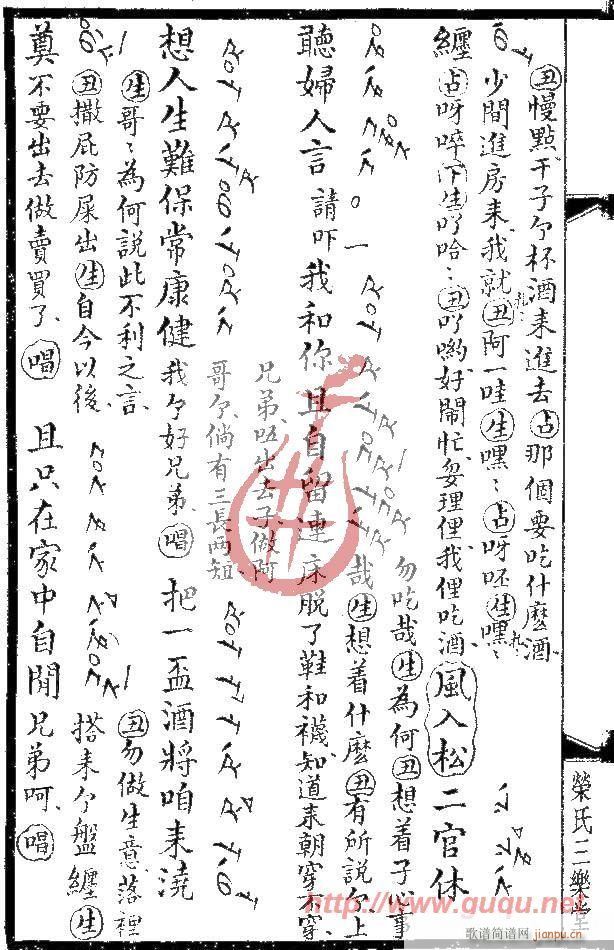 丑慢點干子个杯酒来進去占那個要吃什麽酒
少間進房来我就丑阿一哇生嘿〻占呀呸生嘿〻
纏占呀啐下生吖哈〻丑吖喲好鬧忙妴理俚我俚吃酒風入松二官休
勿吃哉生為何丑想着子心事
哉生想着什麽丑有所説个上
聽婦人言請吓我和你且自留連床脱了鞋和襪知道来朝穿不穿
兄弟唔出去子做阿
哥个倘有三長兩短
想人生難保常康健我个好兄弟唱把一盃酒將咱来澆
生哥〻為何説此不利之言丑勿做生意落裡
丑撒屁防屎出生自今以後搭来个盤纏生
奠不要出去做賣買了唱且只在家中自閒兄弟呵唱
榮氏三樂堂
http://www.guqu.net
歌谱简谱网
jianpu.cn